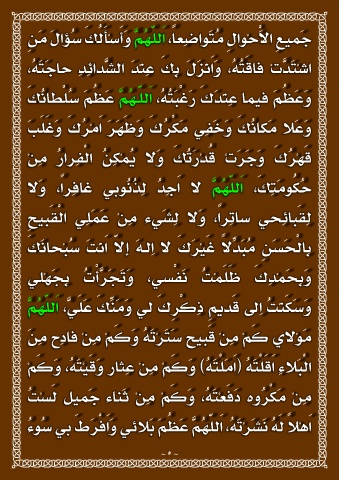 جَميعِ الأَحْوالِ مُتَواضِعاً، اَللّهُمَّ وَأَسأَلُكَ سُؤالَ مَنِ
اشْتَدَّتْ فاقَتُهُ، وَأَنْزَلَ بِكَ عِنْدَ الشَّدائِدِ حاجَتَهُ،
وَعَظُمَ فيما عِنْدَكَ رَغْبَتُهُ، اَللّهُمَّ عَظُمَ سُلْطانُكَ
وَعَلا مَكانُكَ وَخَفِي مَكْرُكَ وَظَهَرَ اَمْرُكَ وَغَلَبَ
قَهْرُكَ وَجَرَتْ قُدْرَتُكَ وَلا يُمْكِنُ الْفِرارُ مِنْ
حُكُومَتِكَ، اَللّهُمَّ لا اَجِدُ لِذُنُوبي غافِراً، وَلا
لِقَبائِحي ساتِراً، وَلا لِشَيْء مِنْ عَمَلِي الْقَبيحِ
بِالْحَسَنِ مُبَدِّلاً غَيْرَكَ لا اِلهَ اِلاّ اَنْتَ سُبْحانَكَ
وَبِحَمْدِكَ ظَلَمْتُ نَفْسي، وَتَجَرَّأْتُ بِجَهْلي
وَسَكَنْتُ اِلى قَديمِ ذِكْرِكَ لي وَمَنِّكَ عَلَيَّ، اَللّهُمَّ
مَوْلاي كَمْ مِنْ قَبيح سَتَرْتَهُ وَكَمْ مِنْ فادِح مِنَ
الْبَلاءِ اَقَلْتَهُ (اَمَلْتَهُ) وَكَمْ مِنْ عِثار وَقَيْتَهُ، وَكَمْ
مِنْ مَكْرُوه دَفَعْتَهُ، وَكَمْ مِنْ ثَناء جَميل لَسْتُ
اَهْلاً لَهُ نَشَرْتَهُ، اَللّهُمَّ عَظُمَ بَلائي وَاَفْرَطَ بي سُوءُ